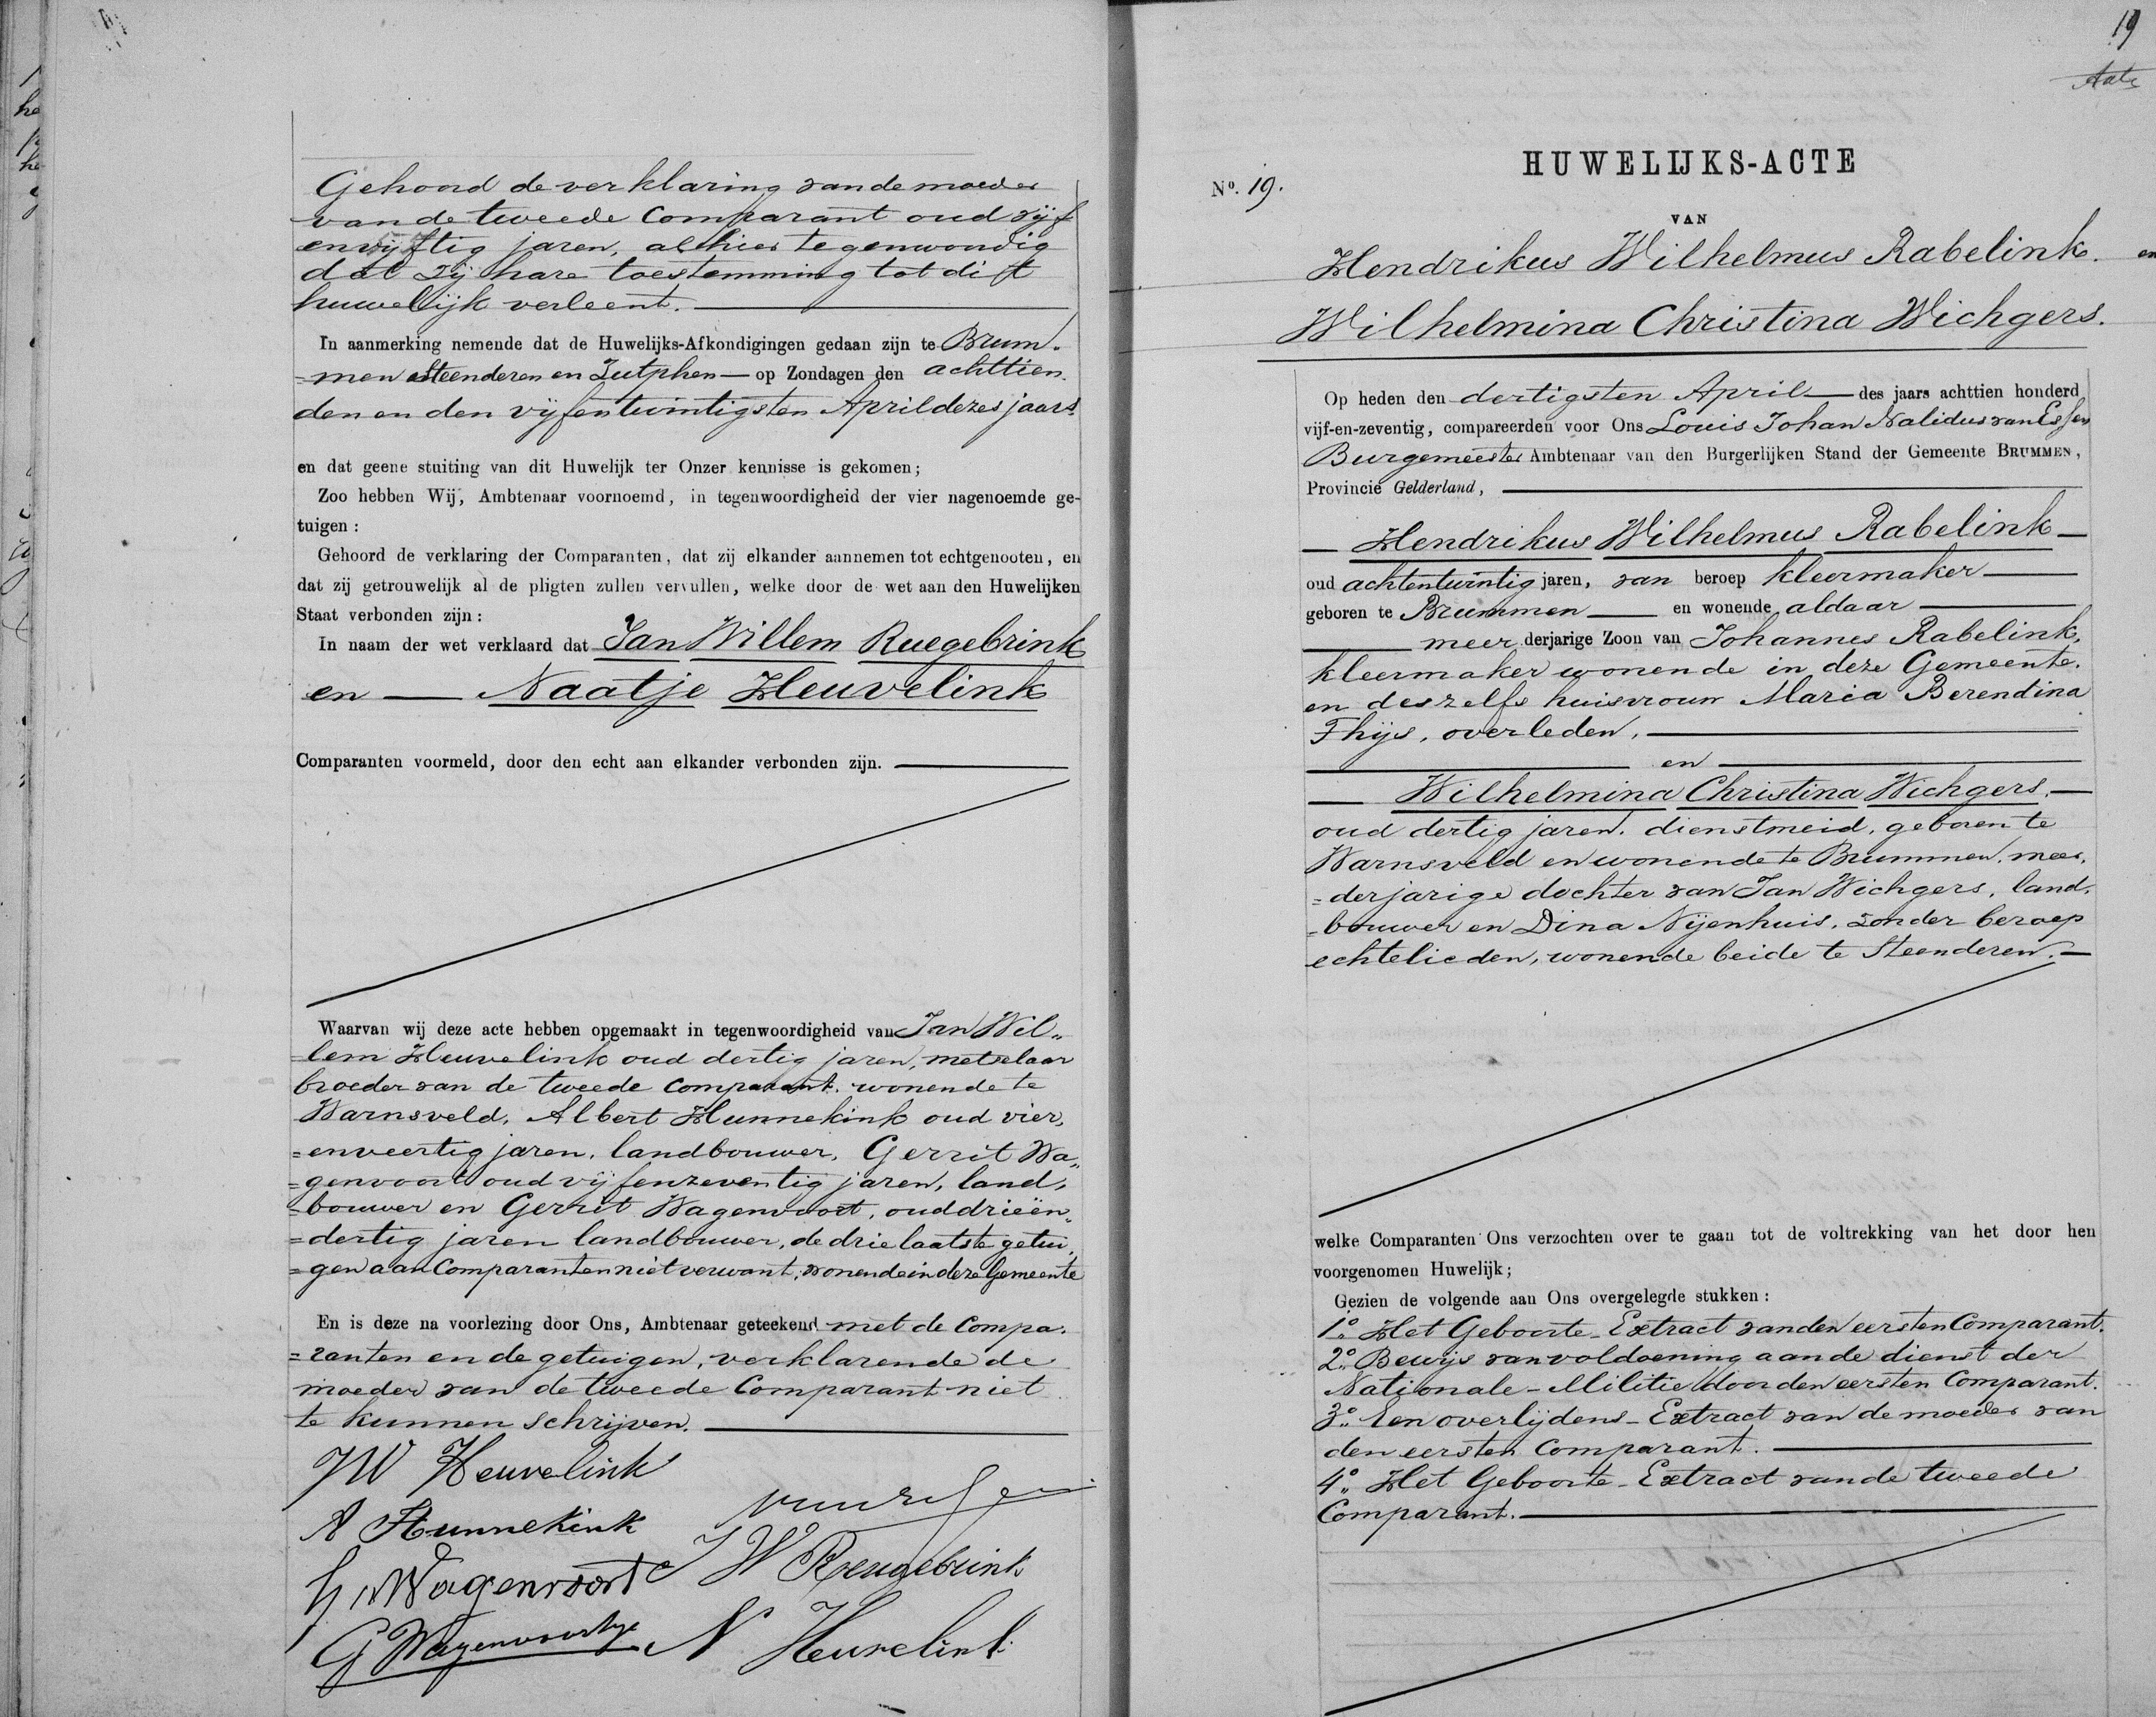 Gehoord de verklaring van de moeder
van de tweede Comparant oud vijf
en vijftig jaren, alhier tegenwoordig
dat zij hare toestemming tot dit
huwelijk verleent.
In aanmerking nemende dat de Huwelijks-Afkondigingen gedaan zijn te Brum-
=men Steenderen en Zutphen — op Zondagen den achttien
den en den vijfentwintigsten April dezes jaars
en dat geene stuiting van dit Huwelijk ter Onzer kennisse is gekomen;
Zoo hebben Wij, Ambtenaar voornoemd, in tegenwoordigheid der vier nagenoemde ge-
tuigen:
Gehoord de verklaring der Comparanten, dat zij elkander aannemen tot echtgenooten, en
dat zij getrouwelijk al de pligten zullen vervullen, welke door de wet aan den Huwelijken
Staat verbonden zijn:
In naam der wet verklaard dat Jan Willem Ruegebrink
en — Naatje Heuvelink
Comparanten voormeld, door den echt aan elkander verbonden zijn.
Waarvan wij deze acte hebben opgemaakt in tegenwoordigheid van Jan Wil„
=lem Heuvelink oud dertig jaren, metselaar
broeder van de tweede Comparant, wonende te
Warnsveld, Albert Hunnekink oud vier,
=enveertig jaren, landbouwer, Gerrit Wa„
=genvoort oud vijfenzeventig jaren, land,
=bouwer en Gerrit Wagenvoort, oud drieën„
=dertig jaren landbouwer, de drie laatste getui„
=gen aan Comparanten niet verwant, wonende in deze Gemeente
En is deze na voorlezing door Ons, Ambtenaar geteekend met de Compa.
=ranten en de getuigen, verklarende de
moeder van de tweede Comparant niet
te kunnen schrijven.
JW Heuvelink
A Hunnekink
G Wagenvoort JW Reugebrink
G Wagenvoort N Heuvelink
19
Acte
HUWELIJKS-ACTE
No. 19.
VAN
Hendrikus Wilhelmus Rabelink. en
Wilhelmina Christina Wichgers.
Op heden den dertigsten April — des jaars achttien honderd
vijf-en-zeventig, compareerden voor Ons Louis Johan Nalidus van Essen
Burgemeester Ambtenaar van den Burgerlijken Stand der Gemeente BRUMMEN,
Provincie Gelderland,
— Hendrikus Wilhelmus Rabelink —
oud achtentwintig jaren, van beroep kleermaker
geboren te Brummen — en wonende aldaar
meerderjarige Zoon van Johannes Rabelink,
kleermaker wonende in deze Gemeente.
en deszelfs huisvrouw Maria Berendina
Thijs, overleden,
en
— Wilhelmina Christina Wichgers, —
oud dertig jaren, dienstmeid, geboren te
Warnsveld en wonende te Brummen, meer,
=derjarige dochter van Jan Wichgers, land,
=bouwer en Dina Nijenhuis, zonder beroep
echtelieden, wonende beide te Steenderen. —
welke Comparanten Ons verzochten over te gaan tot de voltrekking van het door hen
voorgenomen Huwelijk;
Gezien de volgende aan Ons overgelegde stukken:
1o. Het Geboorte-Extract van den eersten Comparant.
2o. Bewijs van voldoening aan de dienst der
Nationale-Militie door den eersten Comparant.
3o. Een overlijdens-Extract van de moeder van
den eersten Comparant.
4o. Het Geboorte-Extract van de tweede
Comparant.